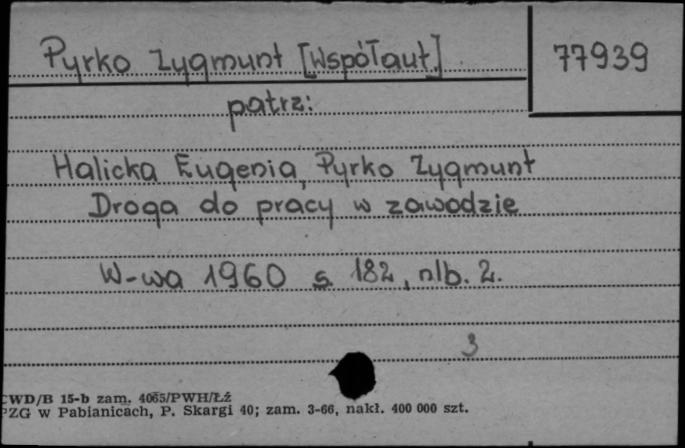 Pyrko Zygmunt [Współaut.]
77939
patrz:
Halicka Eugenia, Pyrko Zygmunt
Droga do pracy w zawodzie
W-wa 1960 s. 182, nlb. 2.
3
CWD/B 15-b zam. 4065/PWH/Łź
PZG w Pabianicach, P. Skargi 40; zam. 3-66, nakł. 400 000 szt.